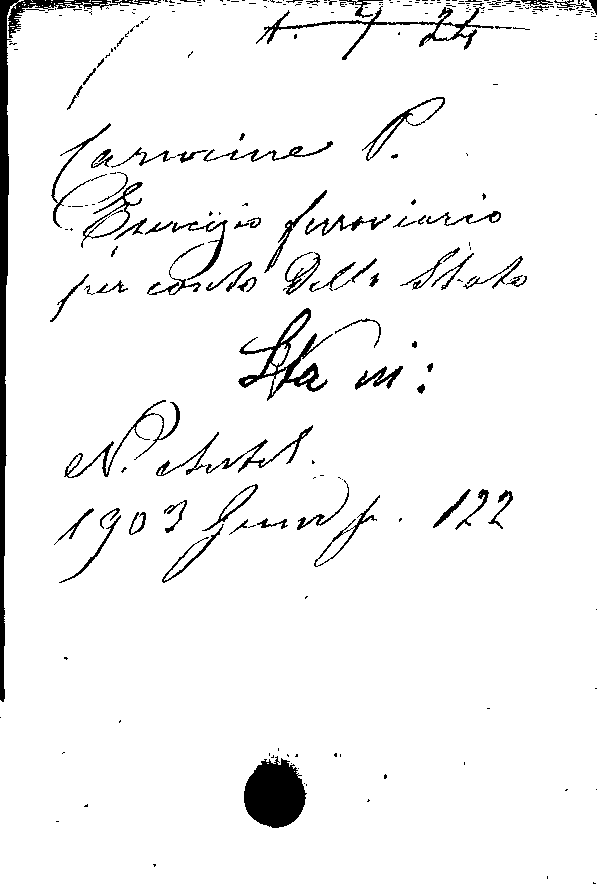 A. 7. 24
Carmine P.
Esercizio ferroviario
per conto dello Stato
Sta in:
N. Antol.
1903 Genn p. 122